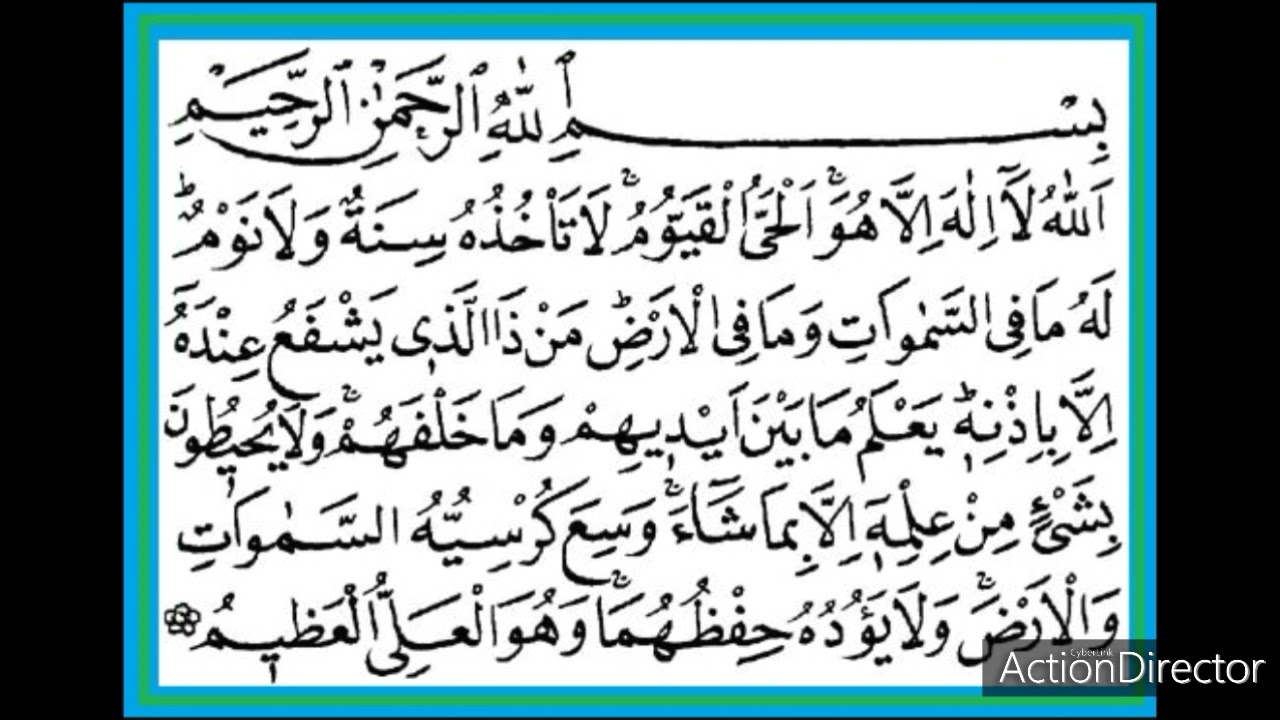 بِسْمِ اللّٰهِ الرَّحْمٰنِ الرَّحِيْمِ
اَللّٰهُ لَآ اِلٰهَ اِلَّا هُوَۚ اَلْحَىُّ الْقَيُّوْمُۚ لَا تَاْخُذُهُ سِنَةٌ وَلَا نَوْمٌؕ
لَهُ مَا فِى السَّمٰوَاتِ وَمَا فِى الْاَرْضِؕ مَنْ ذَا الَّذٖى يَشْفَعُ عِنْدَهُٓ
اِلَّا بِاِذْنِهٖؕ يَعْلَمُ مَا بَيْنَ اَيْدٖيهِمْ وَمَا خَلْفَهُمْۚ وَلَا يُحٖيطُونَ
بِشَىْءٍ مِنْ عِلْمِهٖٓ اِلَّا بِمَا شَٓاءَۚ وَسِعَ كُرْسِيُّهُ السَّمٰوَاتِ
وَالْاَرْضَۚ وَلَا يَؤُدُهُ حِفْظُهُمَاۚ وَهُوَ الْعَلِىُّ الْعَظٖيمُ
CyberLink
ActionDirector